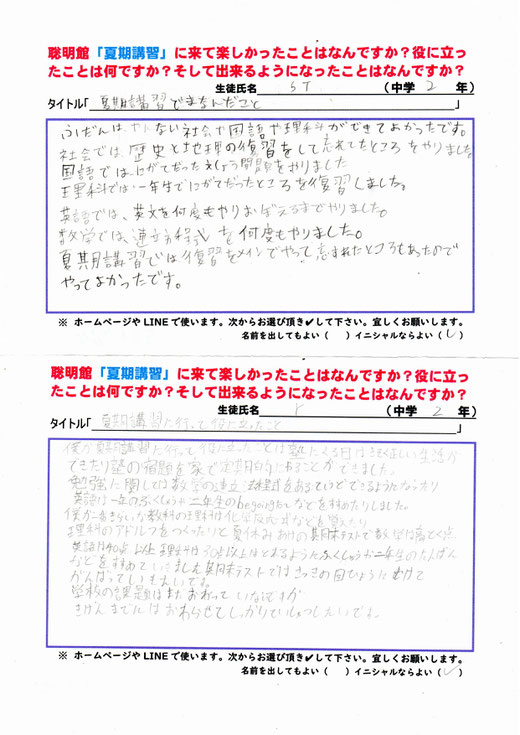 聡明館「夏期講習」に来て楽しかったことはなんですか？役に立っ
たことは何ですか？そして出来るようになったことはなんですか？
生徒氏名 ST （中学 2 年）
タイトル「夏期講習でまなんだこと」
ふだんは、やらない社会や国語や理科ができてよかったです。
社会では、歴史と地理の復習をして忘れてたところをやりました。
国語では、にがてだった 問題をやりました
理科では一年生でにがてだったところを復習しました。
英語では、英文を何度もやりおぼえるまでやりました。
数学では、連立方程式を何度もやりました。
夏期講習では復習をメインでやって忘れたところもあったので
やってよかったです。
※ ホームページやLINEで使います。次からお選び頂き✓して下さい。宜しくお願いします。
名前を出してもよい（　）イニシャルならよい（✓）
聡明館「夏期講習」に来て楽しかったことはなんですか？役に立っ
たことは何ですか？そして出来るようになったことはなんですか？
生徒氏名 （中学 2 年）
タイトル「夏期講習に行って役に立ったこと」
僕が夏期講習に行って役に立ったことは塾にくる日は正しい生活が
できたり塾の宿題を家で定期的にやることができました。
勉強に関しては数学の連立方程式を できるようになったり
英語は一年のふくしゅうや二年生の などをすすめたりしました。
理科の 夏休みあけの期末テストで数学は
英語は40点以上理科は30点以上はとれるようにふくしゅうや二年生の
などをすすめていきました期末テストではさっきの目ひょうにむけて
がんばってい
学校の課題はまだおわっていないですが
きげんまでにはおわらせてしっかりていしゅつしたいです。
※ ホームページやLINEで使います。次からお選び頂き✓して下さい。宜しくお願いします。
名前を出してもよい（　）イニシャルならよい（✓）